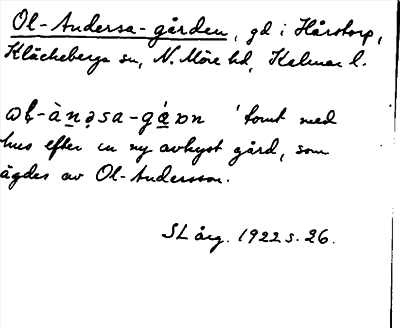 Ol-Andersa-gården, gd i Hårstorp,
Kläckeberga sn, N. Möre hd, Kalmar l.
-sa- 'tomt med
hus efter en ny avhyst gård, som
ägdes av Ol-Andersson.
SL årg. 1922 s. 26.